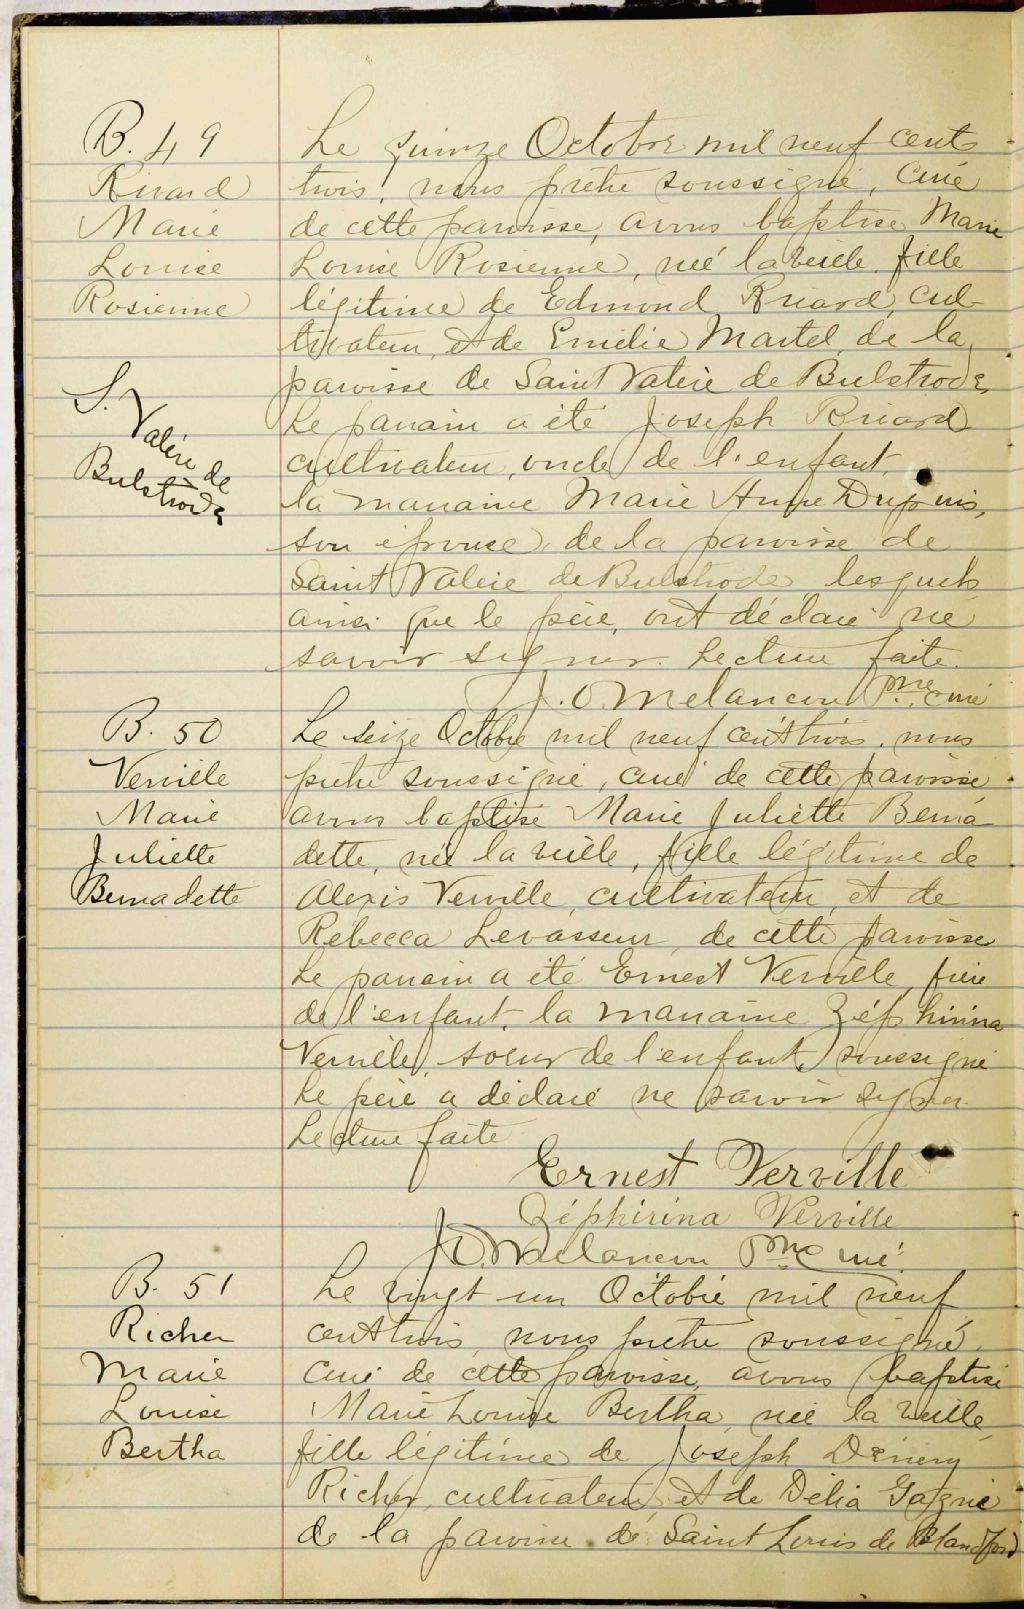 B. 49
Rivard
Marie
Louise
Rosienne
S. Valère de
Bulstrode
Le quinze Octobre mil neuf cent
trois, nous prêtre soussigné, curé
de cette paroisse, avons baptisé Marie
Louise Rosienne, née la veille, fille
légitime de Edmond Rivard, cul-
tivateur, et de Emélie Martel de la
paroisse de Saint Valère de Bulstrode,
Le parrain a été Joseph Rivard
cultivateur, oncle de l'enfant,
la marraine Marie Anne Dupuis,
son épouse, de la paroisse de
Saint Valère de Bulstrode, lesquels
ainsi que le père, ont déclaré ne
savoir signer. Lecture faite.
J. O. Melancon Ptre curé
B. 50
Verville
Marie
Juliette
Bernadette
Le seize Octobre mil neuf cent trois, nous
prêtre soussigné, curé de cette paroisse
avons baptisé Marie Juliette Berna
dette, née la veille, fille légitime de
Alexis Verville, cultivateur, et de
Rébecca Levasseur, de cette paroisse
Le parrain a été Ernest Verville, frère
de l'enfant, la marraine Zéphirina
Verville, soeur de l'enfant, soussigné
Le père a déclaré ne savoir signer.
Lecture faite
Ernest Verville
Zéphirina Verville
J. O. Melancon Ptre curé.
B. 51
Richer
Marie
Louise
Bertha
Le vingt un Octobre mil neuf
cent trois, nous prêtre soussigné,
curé de cette paroisse, avons baptisé
Marie Louise Bertha, née la veille,
fille légitime de Joseph
Richer, cultivateur, et de Délia Gagné
de la paroisse de Saint Louis de Blandford